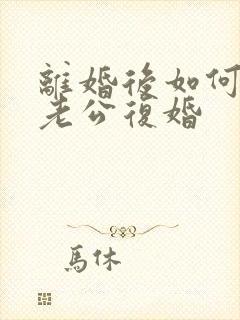 離婚後如何
老公復婚
馬休